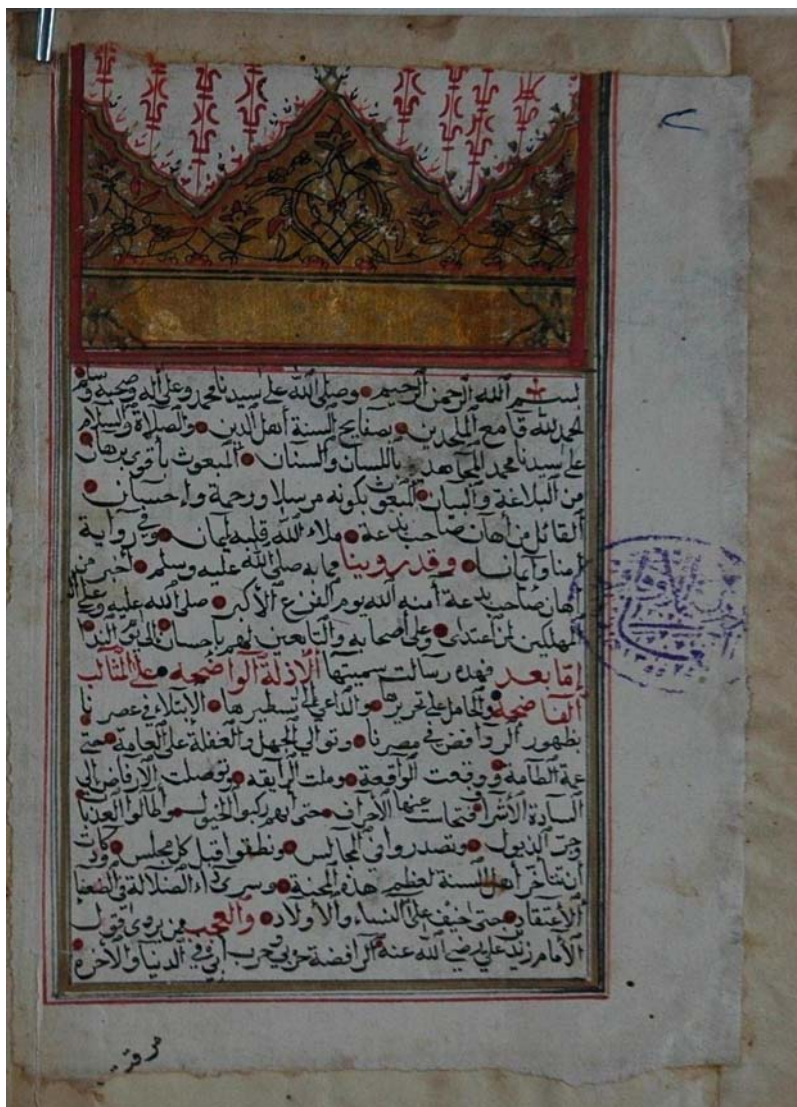 بسم الله الرحمن الرحيم وصلى الله على سيدنا محمد وعلى آله وصحبه وسلم
الحمد لله قامع الملحدين بصفايح السنة أهل الدين والصلاة والسلام
على سيدنا محمد المجاهد باللسان والسنان المبعوث بأقوى برهان
من البلاغة والبيان المنعوت بكونه مرسلا ورحمة وإحسان
القائل من أهان صاحب بدعة ملاء الله قلبه إيمان وفي رواية
أمنا وإيمانا وقد روينا مما به صلى الله عليه وسلم أخبر من
أهان صاحب بدعة آمنه الله يوم الفزع الأكبر صلى الله عليه وعلى آله
المهلكين لمن اعتدى وعلى أصحابه والتابعين لهم بإحسان إلى يوم الندا
إما بعد فهذه رسالت سميتها الأدلة الواضحه على المثالب
الفاضحة والحامل على تحريرها والداعي إلى تسطيرها الإبتلاء في عصرنا
بظهور الروافض في مصرنا وتوالي الجهل والغفلة على العامة حتى
عمة الطامة ووقعت الواقعة وملت الرايقه وتوصلت الأرفاض إلى
السادة الأشراف عنها الأحراف حتى أنهم ركبوا الخيول وأطالوا العذبا
وجر الذيول وتصدروا في المجالس ونطقوا قبل كل مجلس وكادت
أن تتأخر أهل السنة لعظيم هذه المحنة وسرى داء الضلالة في الضعفا
الأعتقاد حتى اخيف على النساء والأولاد والعجب ممن يروى قول
الأمام زيد بن علي رضي الله عنه الرافضة حربي وحرب أبي في الدنيا والآخرة